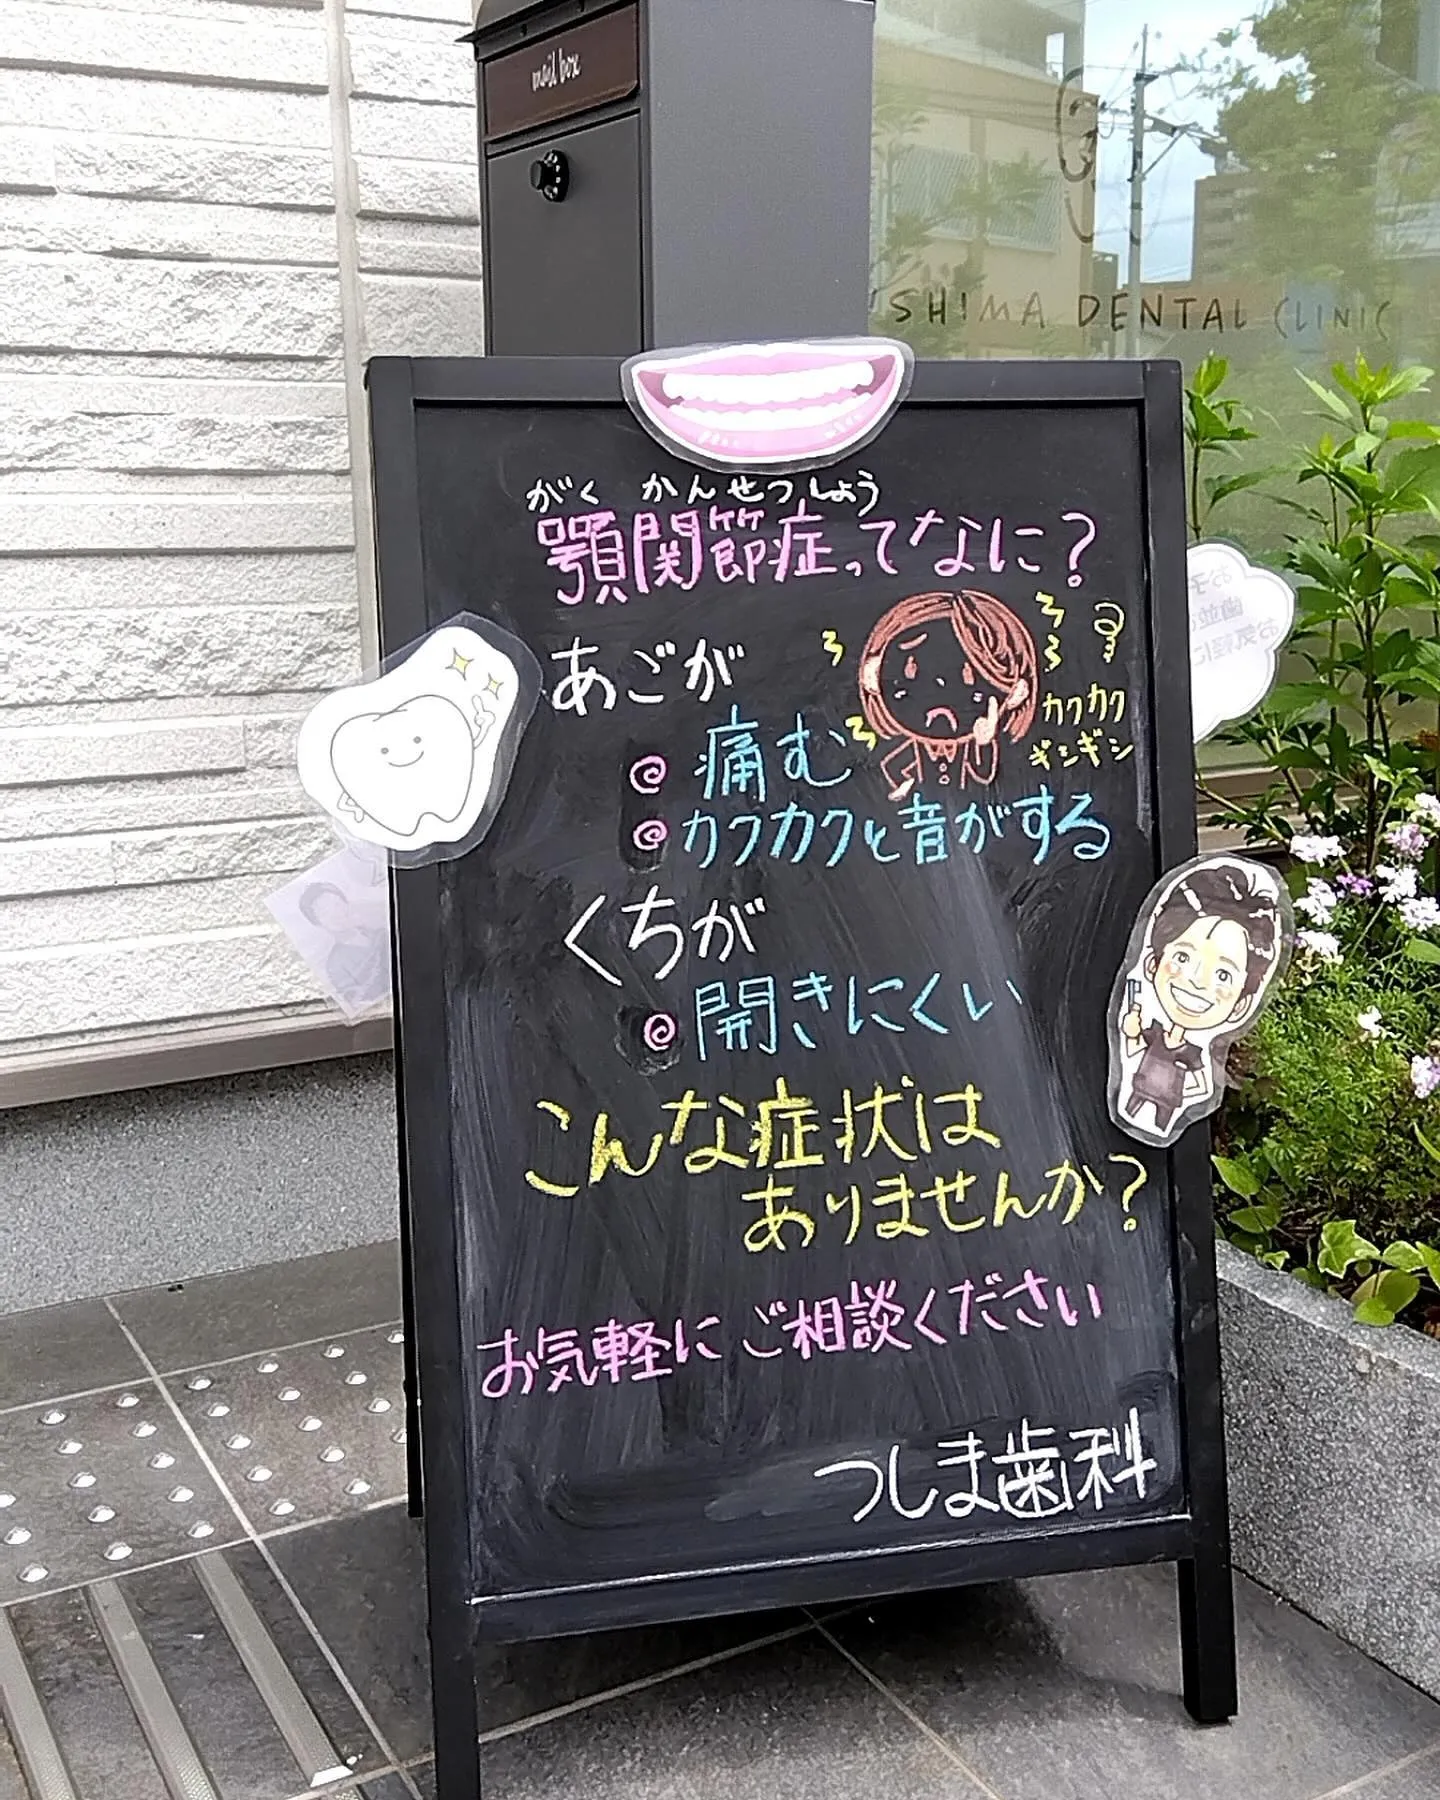 mail box
SHIMA DENTAL CLINIC
がく かんせつしょう
顎関節症ってなに？
あごが
痛む
カクカク
ギシギシ
カクカクと音がする
くちが
開きにくい
こんな症状は
ありませんか？
お気軽にご相談ください
つしま歯科